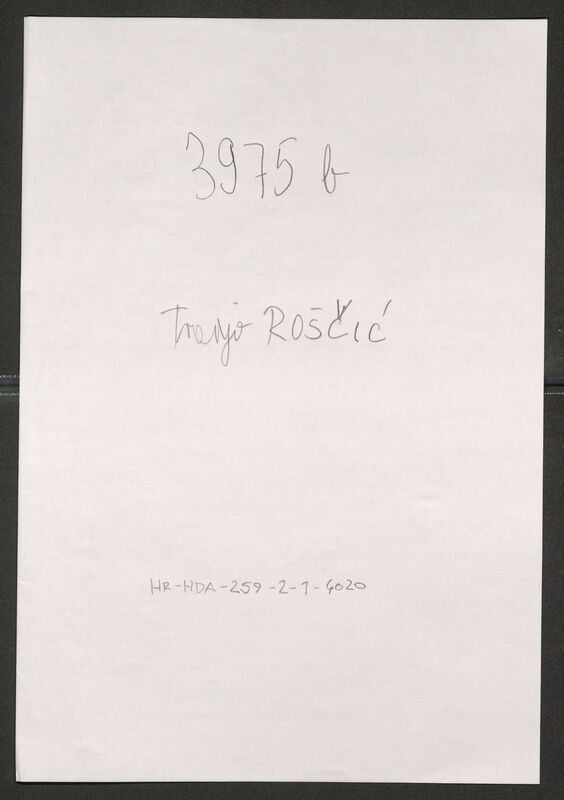 3975 b
Franjo ROŠČIĆ
HR-HDA-259-2-1-4020